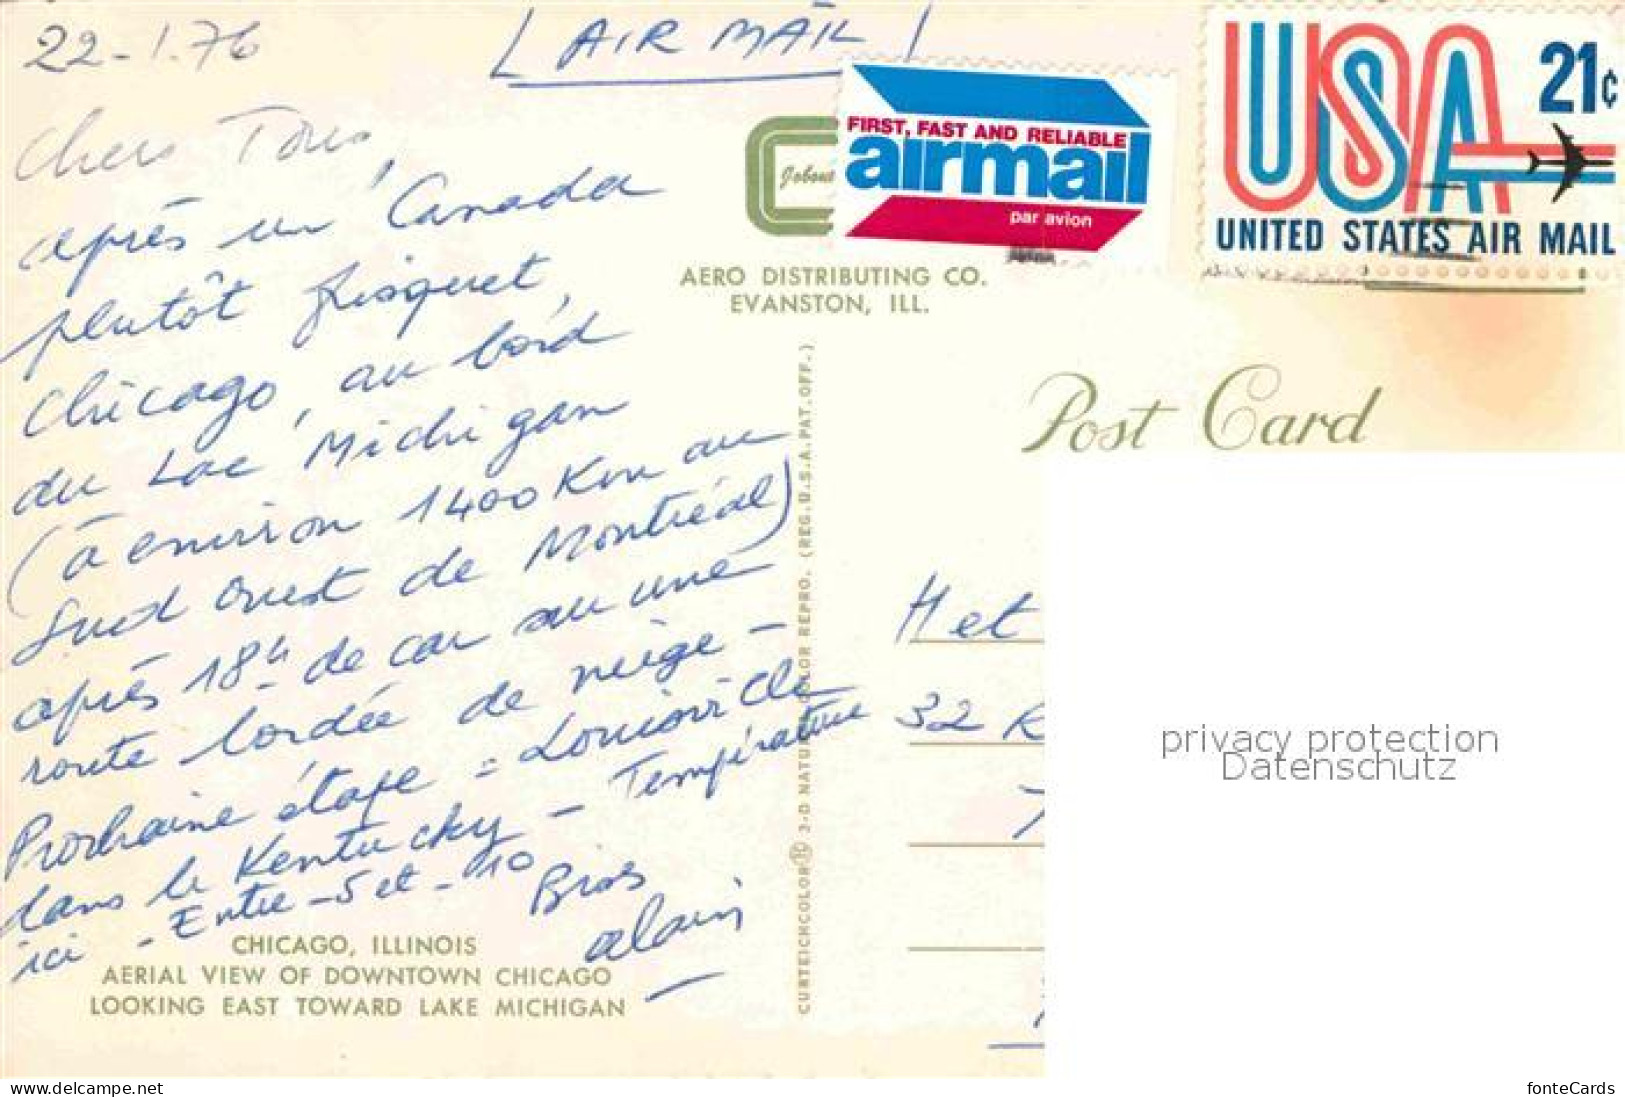 22-1.76
AIR MAIL
FIRST, FAST AND RELIABLE
airmail
par avion
USA
21¢
UNITED STATES AIR MAIL
Chers Tous
après un Canada
plutôt frisquet,
Chicago, au bord
du Lac Michigan
(à environ 1400 Km au
Sud Ouest de Montréal)
après 18h de car sur une
route bordée de neige -
Prochaine étape = Louisville
dans le Kentucky - Température
ici - Entre -5 et -10
Bises
alain
AERO DISTRIBUTING CO.
EVANSTON, ILL.
CHICAGO, ILLINOIS
AERIAL VIEW OF DOWNTOWN CHICAGO
LOOKING EAST TOWARD LAKE MICHIGAN
CURTEICHCOLOR® 3-D NATURAL COLOR REPRO. (REG. U.S.A. PAT. OFF.)
Post Card
H et
32 R
privacy protection
Datenschutz
delcampe.net
fonteCards